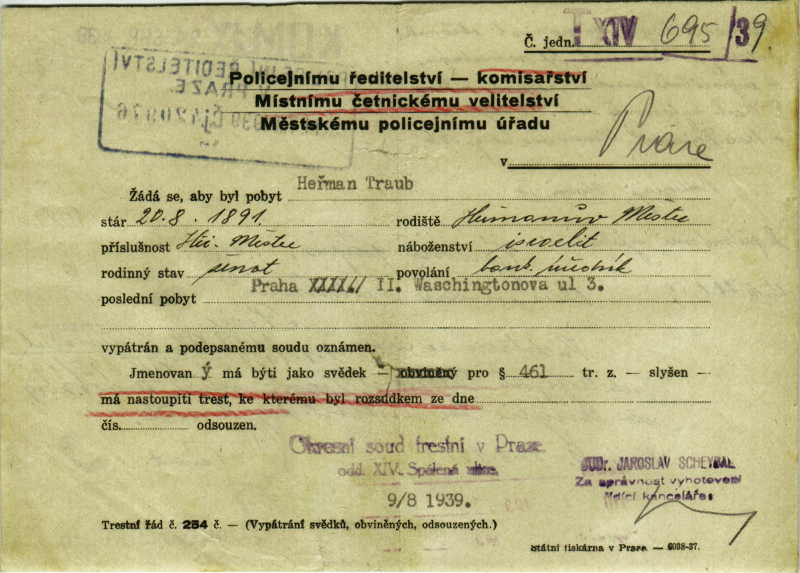 Č. jedn. T XIV 695/39
ŘEDITELSTVÍ
V PRAZE
Policejnímu ředitelství — komisařství
Místnímu četnickému velitelství
Městskému policejnímu úřadu
v Praze
Žádá se, aby byl pobyt Heřman Traub
stár 20.8.1891. rodiště Heřmanův Městec
příslušnost Heř. Městec náboženství israelit
rodinný stav ženat povolání bank. úředník
poslední pobyt Praha II. Waschingtonova ul 3.
vypátrán a podepsanému soudu oznámen.
Jmenovan ý má býti jako svědek — obviněný pro § 461 tr. z. — slyšen —
má nastoupiti trest, ke kterému byl rozsudkem ze dne
čís. odsouzen.
Okresní soud trestní v Praze
odd. XIV. Spálená ulice.
JUDr. JAROSLAV SCHEYBAL
Za správnost vyhotovení
řídící kanceláře:
9/8 1939.
Trestní řád č. 254 č. — (Vypátrání svědků, obviněných, odsouzených.)
Státní tiskárna v Praze — 6038-37.